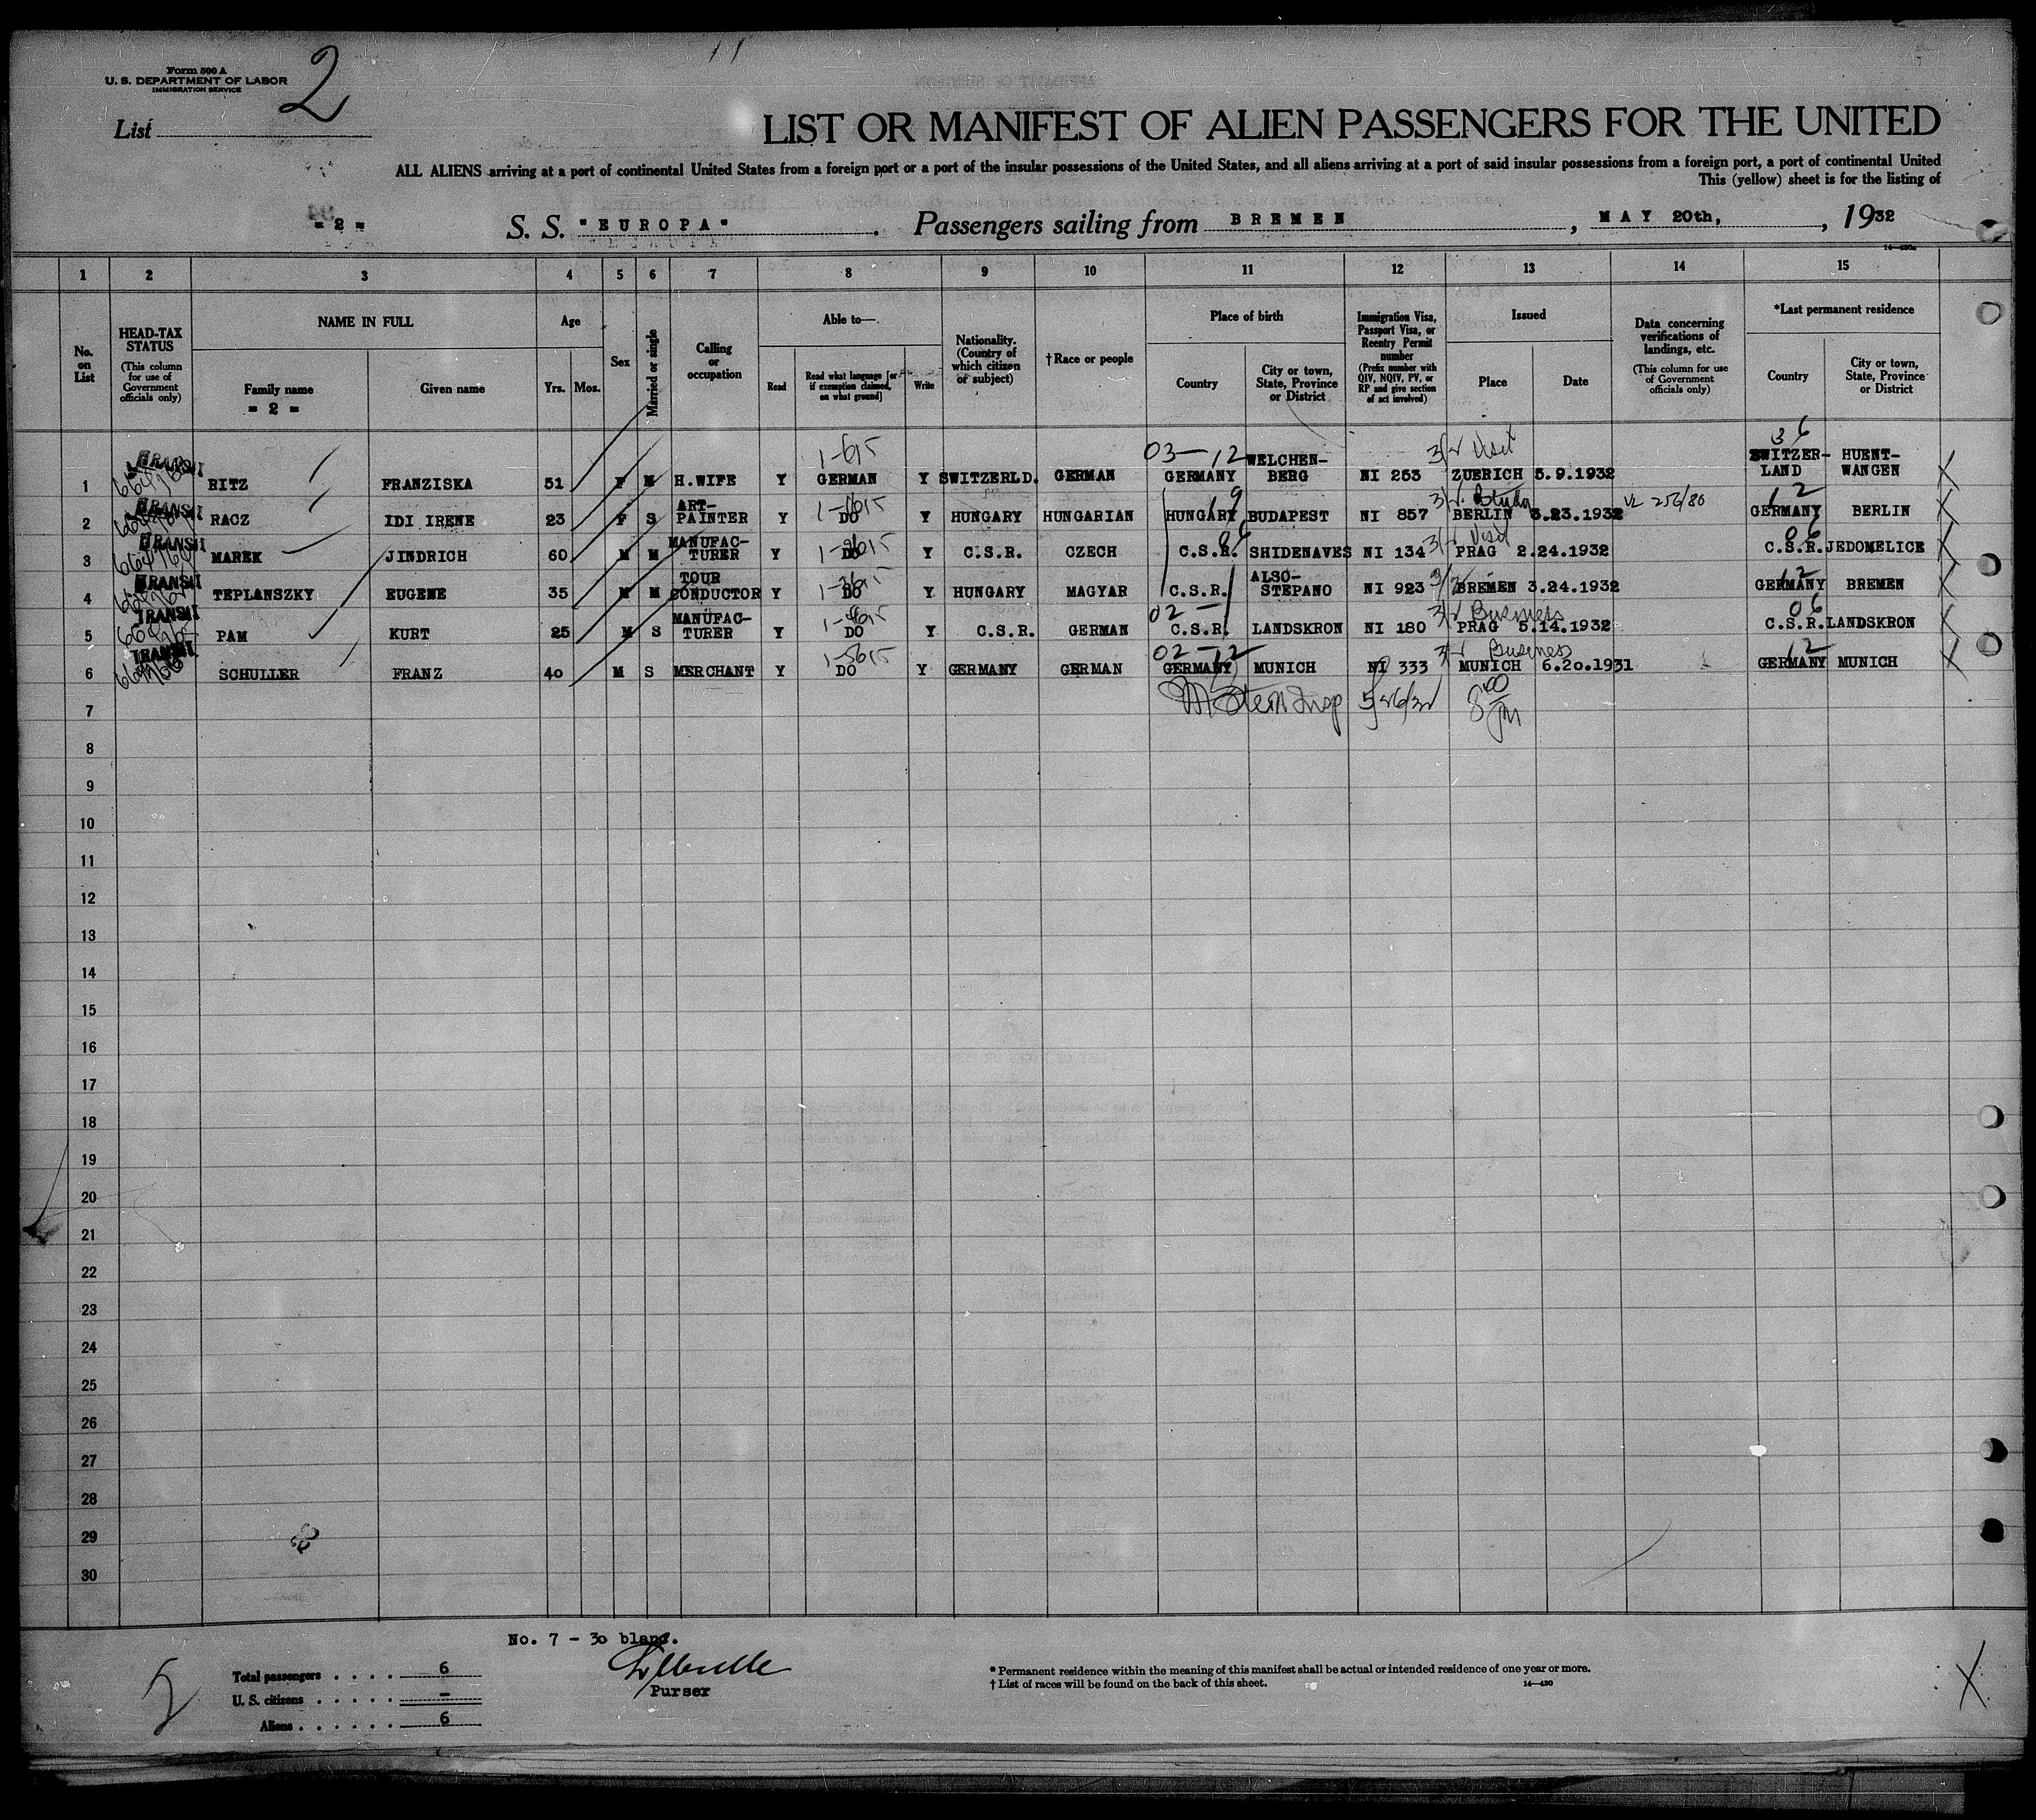 Form 500 A
U. S. DEPARTMENT OF LABOR
IMMIGRATION SERVICE
2
List
LIST OR MANIFEST OF ALIEN PASSENGERS FOR THE UNITED
ALL ALIENS arriving at a port of continental United States from a foreign port or a port of the insular possessions of the United States, and all aliens arriving at a port of said insular possessions from a foreign port, a port of continental United
This (yellow) sheet is for the listing of
= 2 = S. S. "EUROPA" Passengers sailing from BREMEN, MAY 20th, , 1932
14—430a
1 2 3 4 5 6 7 8 9 10 11 12 13 14 15
No. on List
HEAD-TAX STATUS
(This column for use of Government officials only)
NAME IN FULL
Family name
= 2 =
Given name
Age
Yrs. Mos.
Sex
Married or single
Calling or occupation
Able to—
Read
Read what language [or if exemption claimed, on what ground]
Write
Nationality. (Country of which citizen or subject)
† Race or people
Place of birth
Country
City or town, State, Province or District
Immigration Visa, Passport Visa, or Reentry Permit number
(Prefix number with QIV, NQIV, PV, or RP and give section of act involved)
Issued
Place
Date
Data concerning verifications of landings, etc.
(This column for use of Government officials only)
*Last permanent residence
Country
City or town, State, Province or District
1-615 03-12 3/2 Visit 36
1 TRANSIT RITZ FRANZISKA 51 F M H.WIFE Y GERMAN Y SWITZERLD. GERMAN GERMANY WELCHEN-BERG NI 253 ZUERICH 5.9.1932 SWITZER-LAND HUENT-WANGEN
2 TRANSIT RACZ IDI IRENE 23 F S ART-PAINTER Y DO Y HUNGARY HUNGARIAN HUNGARY BUDAPEST NI 857 BERLIN 3.23.1932 GERMANY BERLIN
3 TRANSIT MAREK JINDRICH 60 M M MANUFAC-TURER Y DO Y C.S.R. CZECH C.S.R. SHIDENAVES NI 134 Visit PRAG 2.24.1932 C.S.R. JEDOMELICE
4 TRANSIT TEPLANSZKY EUGENE 35 M M TOUR CONDUCTOR Y DO Y HUNGARY MAGYAR C.S.R. ALSO-STEPANO NI 923 BREMEN 3.24.1932 GERMANY BREMEN
5 TRANSIT PAM KURT 25 M S MANUFAC-TURER Y DO Y C.S.R. GERMAN C.S.R. LANDSKRON NI 180 Business PRAG 5.14.1932 C.S.R. LANDSKRON
6 TRANSIT SCHULLER FRANZ 40 M S MERCHANT Y DO Y GERMANY GERMAN GERMANY MUNICH NI 333 Business MUNICH 6.20.1931 GERMANY MUNICH
7 5/26/32
8
9
10
11
12
13
14
15
16
17
18
19
20
21
22
23
24
25
26
27
28
29
30
No. 7 - 30 blanc.
Purser
Total passengers . . . . 6
U. S. citizens . . . . . —
Aliens . . . . . . 6
* Permanent residence within the meaning of this manifest shall be actual or intended residence of one year or more.
† List of races will be found on the back of this sheet.
14—430